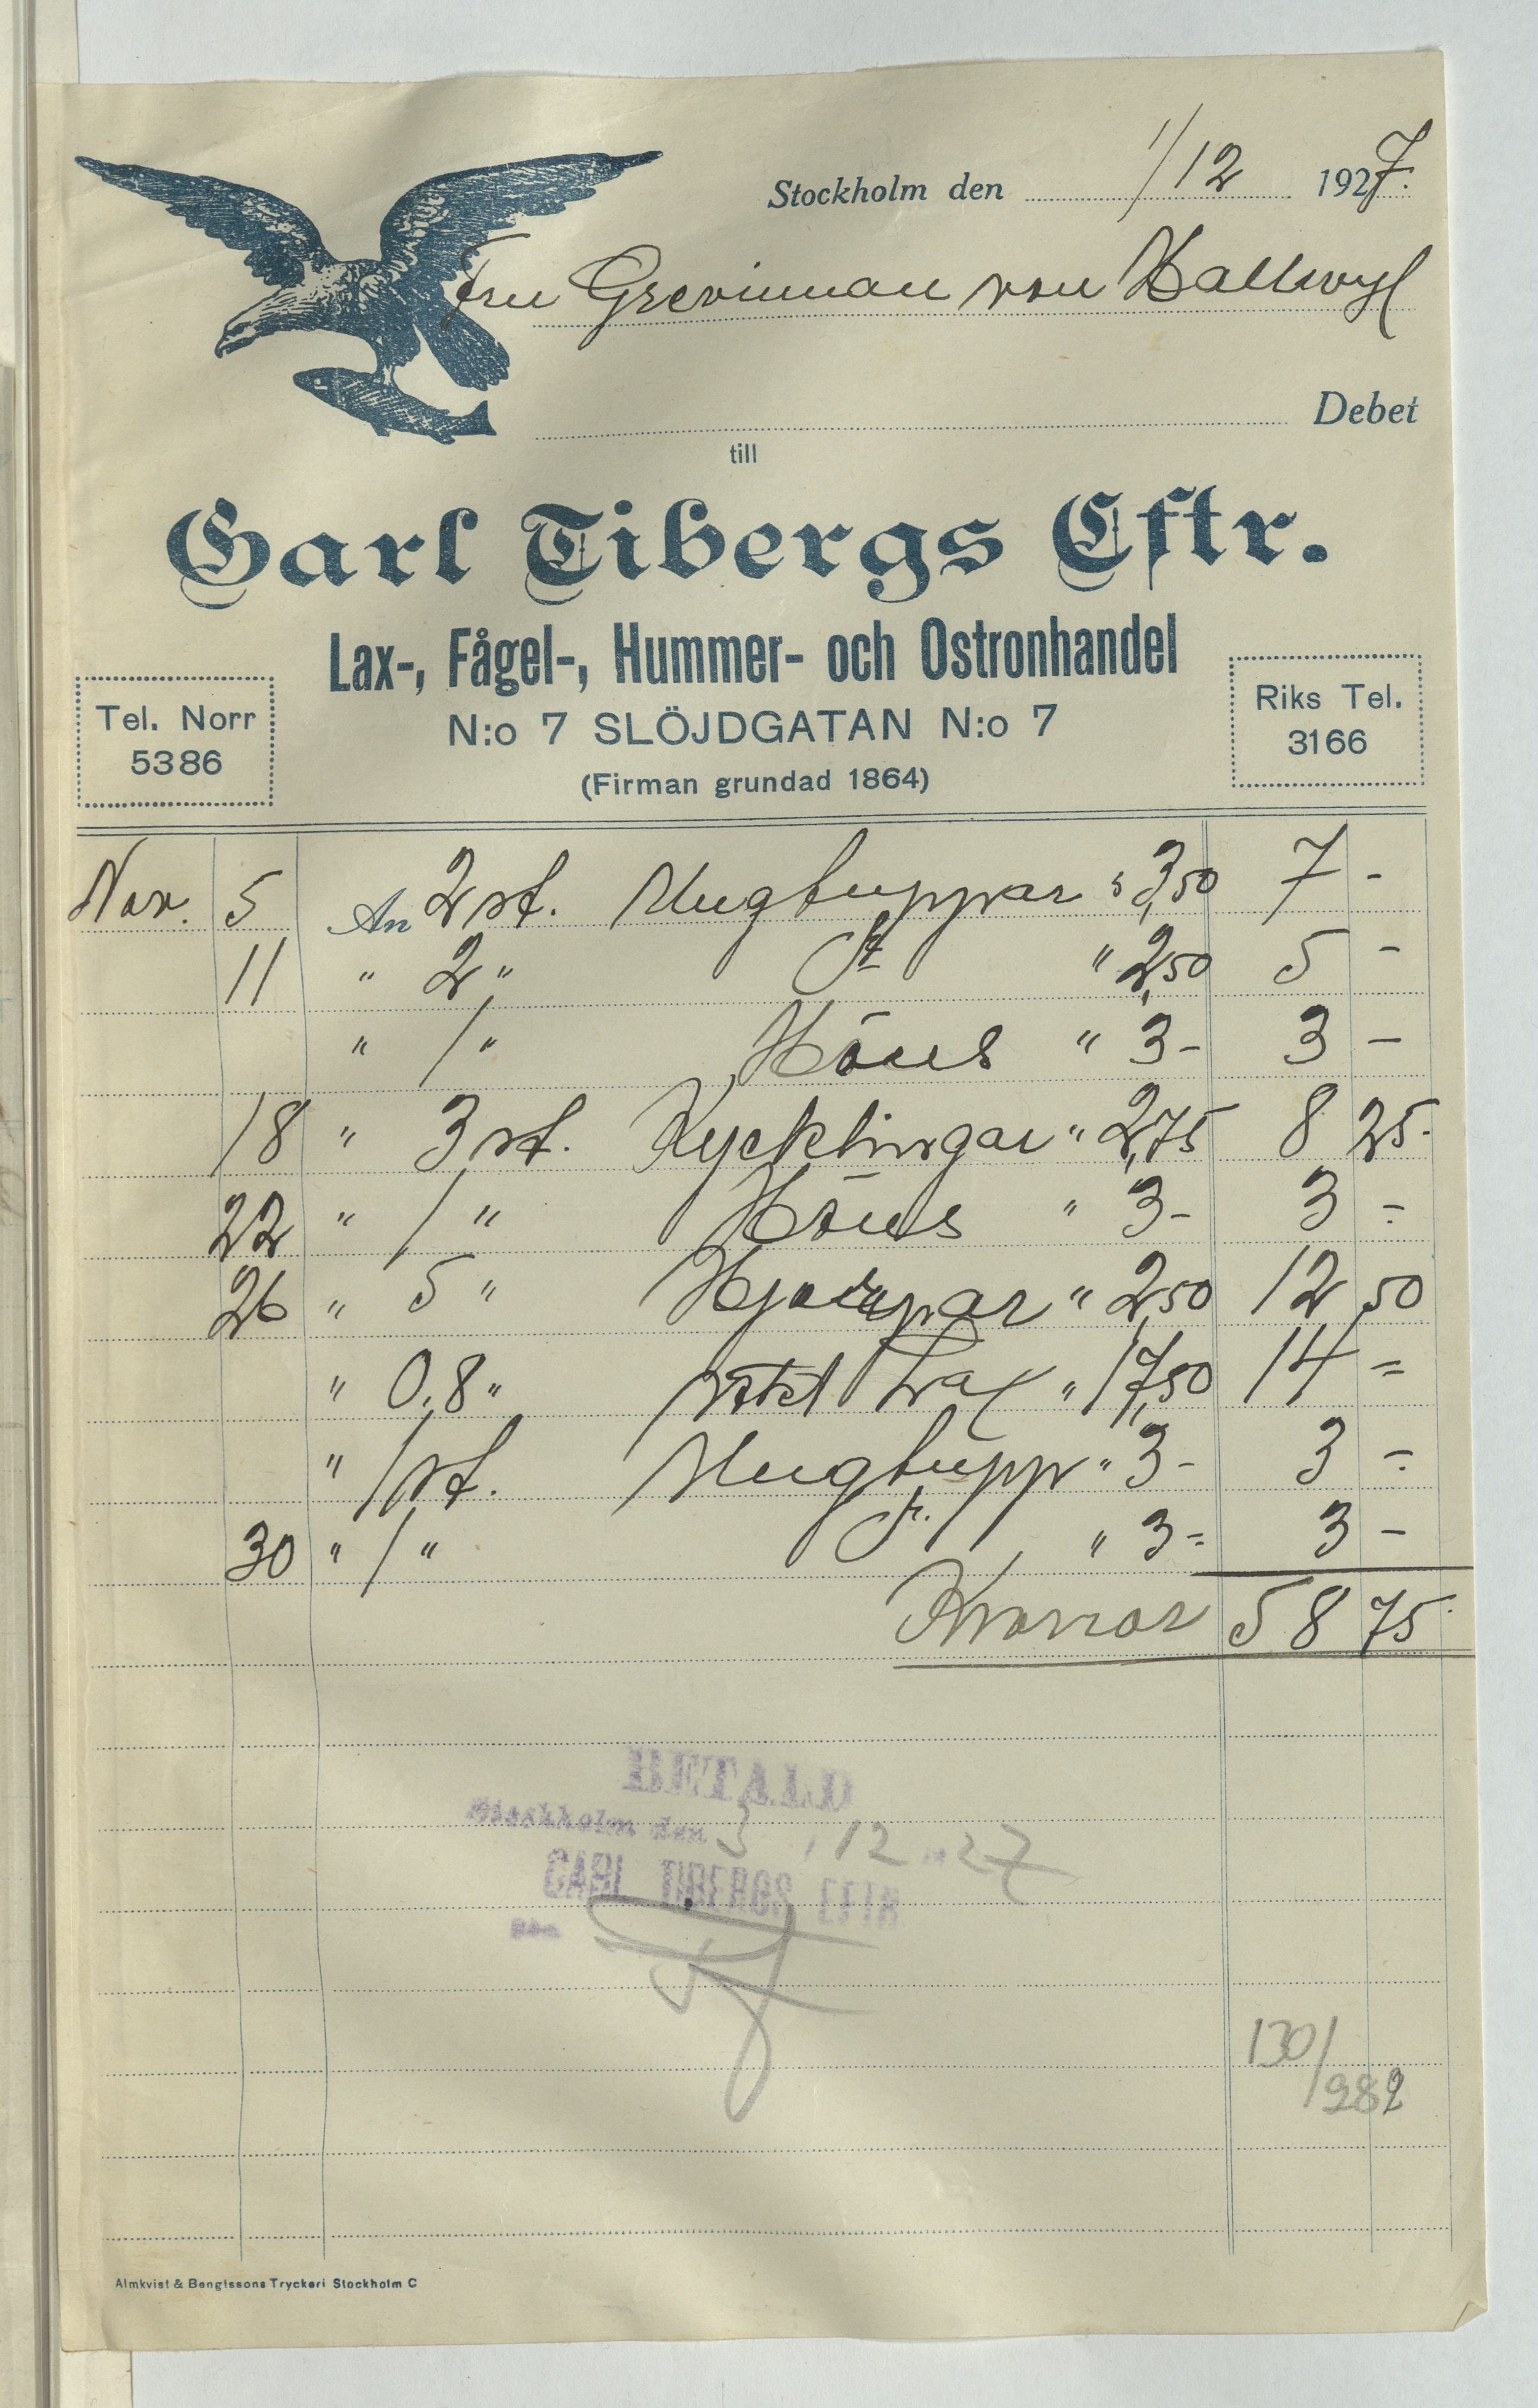 Stockholm den 1/12 1927.
Fru Grevinnan von Hallwyl
Debet
till
Carl Tibergs Eftr.
Lax-, Fågel-, Hummer- och Ostronhandel
Tel. Norr
5386
N:o 7 SLÖJDGATAN N:o 7
(Firman grundad 1864)
Riks Tel.
3166
Nov. 5 An 2 st. Ungtuppar 3,50 7 -
11 " 2 " " 2,50 5 -
" 1 " Höns " 3- 3 -
18 " 3 st. Kycklingar " 2,75 8 25.
22 " 1 " Höns " 3- 3 -
26 " 5 " Hjerpar " 2,50 12 50
" 0,8 " rökt Lax " 17,50 14 =
" 1 st. Ungtupp " 3- 3 -
30 " 1 " " 3= 3 -
Kronor 58 75.
BETALD
Stockholm den 3 / 12 1927
CARL TIBERGS EFTR
130/
282
Almkvist & Bengtssons Tryckeri Stockholm C